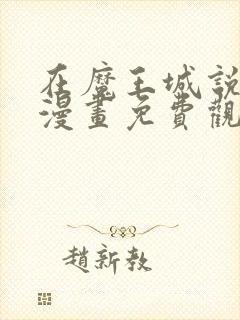 在魔王城說
漫畫免費觀
趙新教